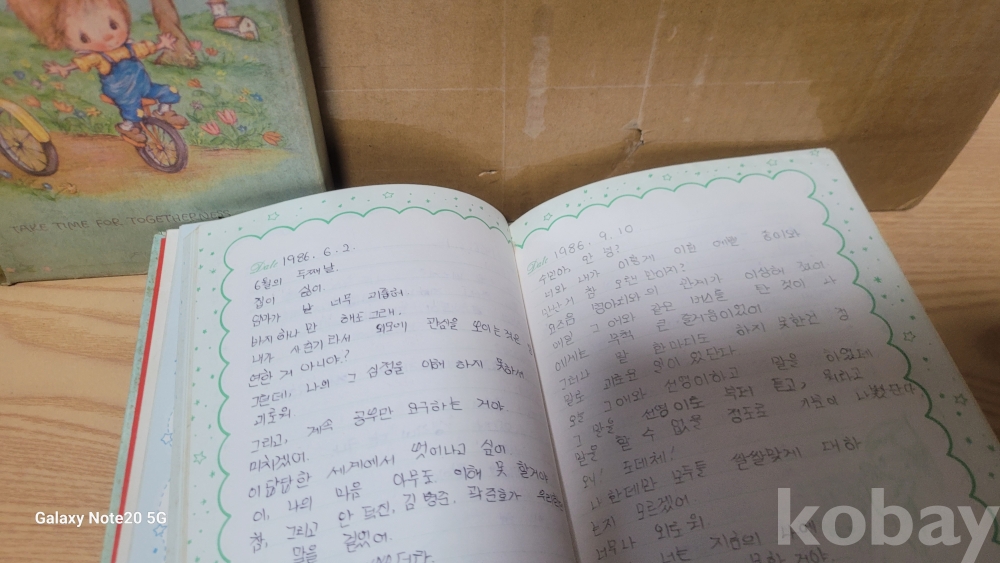 TAKE TIME FOR TOGETHERNESS
Date 1986. 6. 2.
6월의 두째날.
집이 싫어.
엄마가 날 너무 괴롭혀.
바지 하나만 해도 그래.
내가 사춘기라서 외모에 관심을 보이는 것은 당
연한 거 아니야?
그런데, 나의 그 심정을 이해 하지 못하셔
괴로워
그리고, 계속 공부만 요구하는 거야
미치겠어.
이 답답한 세계에서 벗어나고 싶어.
이, 나의 마음 아무도 이해 못 할거야
참, 그리고 안 김 곽준호가 우리
말을 걸었어.
Date 1986. 9. 10
안녕?
너와 내가 이렇게 이런 예쁜 종이와
만난 게 참 오랜만이지?
요즈음 와의 관계가 이상해 졌어
그 애와 같은 버스를 탄 것이 나
에겐 무척 큰 즐거움이었어
에게는 말 한마디도 하지 못한건 정
말로 괴로운 일이 었단다
오늘 그애와 선영이하고 말을 하였데
그 말을 선영이로 부터 듣고, 뭐라고
말을 할 수 없을 정도로 기분이 나빴단다
왜! 도데체!
나 한데만 모두들 쌀쌀맞게 대하
는지 모르겠어.
너무나 외로워
너는 지금의
못할 거야.
Galaxy Note20 5G
kobay